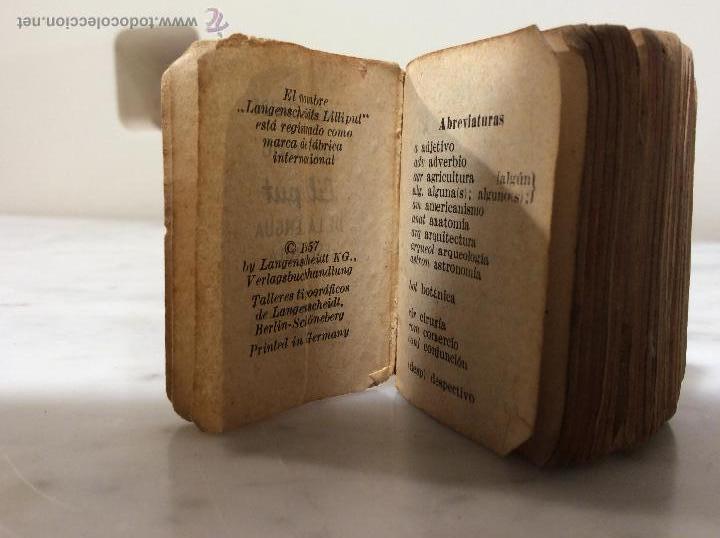 El nombre
„Langenscheidts Lilliput“
está registrado como
marca de fábrica
internacional
© 1957
by Langenscheidt KG.,
Verlagsbuchhandlung
Talleres tipográficos
de Langenscheidt,
Berlin-Schöneberg
Printed in Germany
Abreviaturas
a adjetivo
adv adverbio
agr agricultura (algún
alg. alguna(s); alguno(s);}
am americanismo
anat anatomía
arq arquitectura
arqueol arqueología
astron astronomía
bot botánica
cir ciruría
com comercio
conj conjunción
desp; despectivo
www.todocoleccion.net